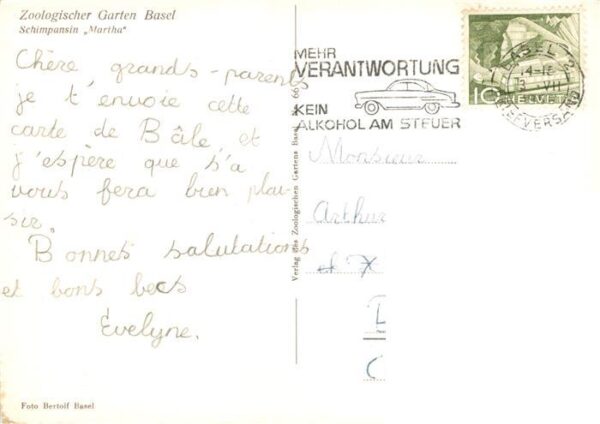 Zoologischer Garten Basel
Schimpansin „Martha"
Chère grands-parents
je t'envoie cette
carte de Bâle et
j'espère que s'a
vous fera bien plai-
sir.
Bonnes salutations
et bons becs
Evelyne.
Foto Bertolf Basel
Verlag des Zoologischen Gartens Basel
MEHR
VERANTWORTUNG
KEIN
ALKOHOL AM STEUER
BASEL 2
14-
VII
BRIEFVERSAND
10 HELVETIA
Monsieur
Arthur
et